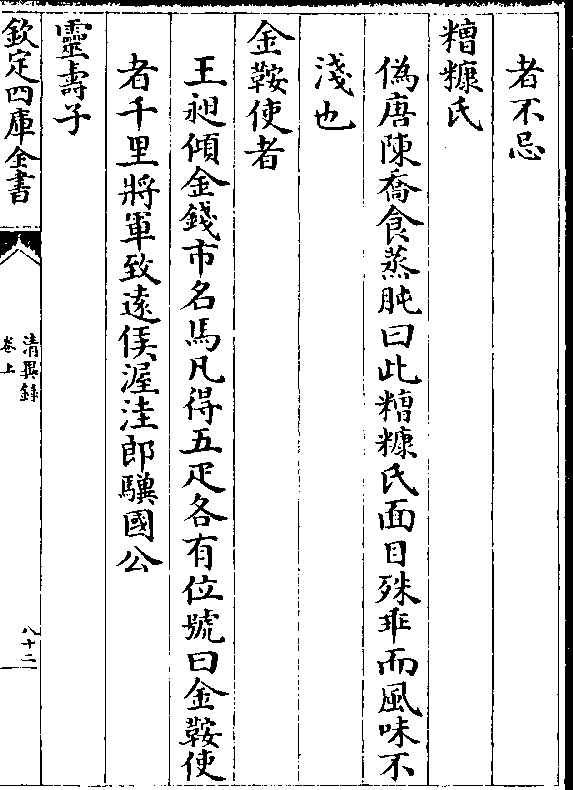 者不忌
糟糠氏
偽唐陳喬食蒸肫曰此糟糠氏面目殊乖而風味不
淺也
金鞍使者
王昶傾金錢市名馬凡得五疋各有位號曰金鞍使
者千里將軍致遠侯渥洼郎驥國公
靈壽子
欽定四庫全書
清異錄
卷上
八十二